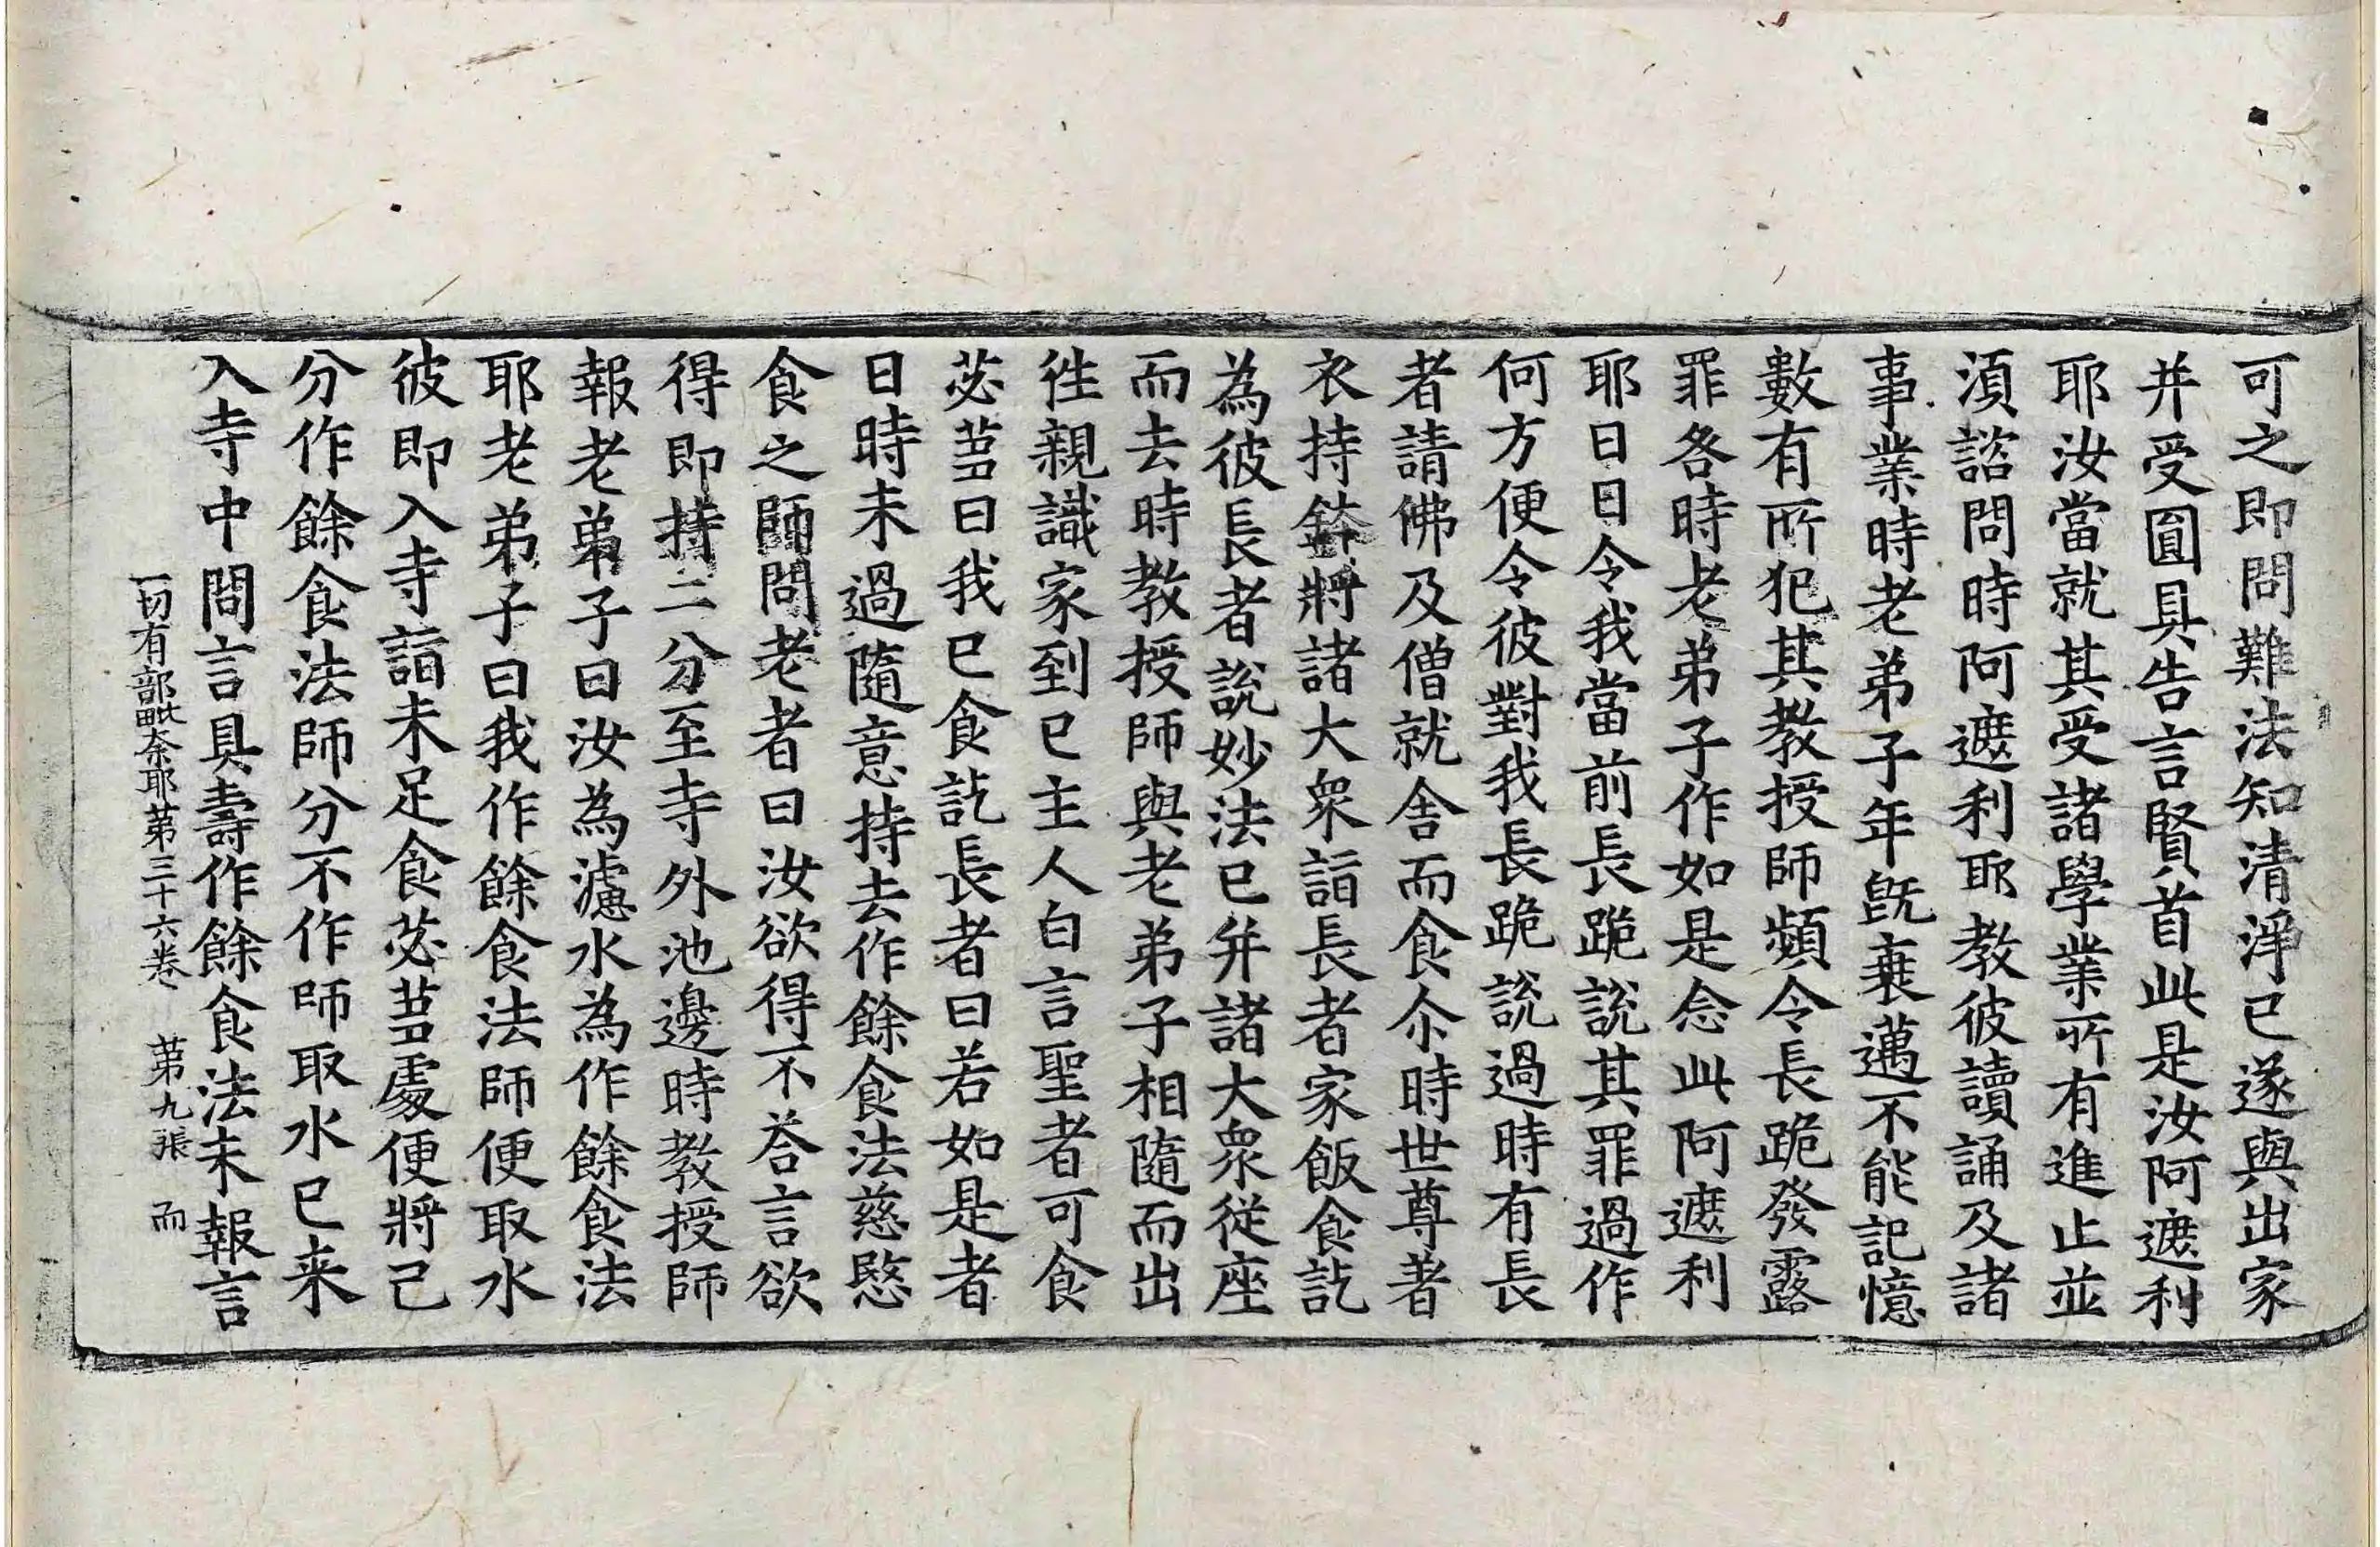 可之即問難法知清淨已遂與出家
并受圓具告言賢首此是汝阿遮利
耶汝當就其受諸學業所有進止並
湏諮問時阿遮利耶教彼讀誦及諸
事業時老弟子年旣衰邁不能記憶
數有所犯其教授師頻令長跪發露
罪各時老弟子作如是念此阿遮利
耶日日令我當前長跪說其罪過作
何方便令彼對我長跪說過時有長
者請佛及僧就舍而食尒時世尊著
衣持鉢將諸大衆詣長者家飯食訖
為彼長者說妙法已并諸大衆從座
而去時教授師與老弟子相隨而出
徃親識家到已主人白言聖者可食
苾蒭曰我已食訖長者曰若如是者
日時未過隨意持去作餘食法慈愍
食之師問老者曰汝欲得不荅言欲
得即持二分至寺外池邊時教授師
報老弟子曰汝為濾水為作餘食法
耶老弟子曰我作餘食法師便取水
彼即入寺詣未足食苾蒭處便將己
分作餘食法師分不作師取水已来
入寺中問言具壽作餘食法未報言
一切有部毗奈耶第三十六卷 第九張 而